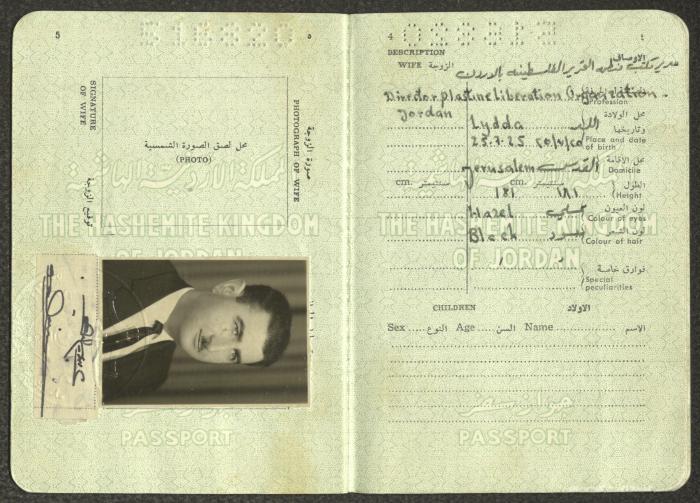 5
٥
SIGNATURE
OF WIFE
توقيع الزوجة
محل لصق الصورة الشمسية
(PHOTO)
صورة الزوجة
PHOTOGRAPH OF WIFE
المملكة الأردنية الهاشمية
THE HASHEMITE KINGDOM
OF JORDAN
جواز سفر
PASSPORT
4
٤
DESCRIPTION
الاوصاف
WIFE الزوجة
مدير مكتب منظمة التحرير الفلسطينية بالاردن
Director Plastine Liberation Organization.
Profession
Jordan
محل الولادة
Lydda اللد
وتاريخها
25.7.25 ٢٥/٧/٢٥
Place and date
of birth
محل الأقامة
Jerusalem القدس
Domicile
cm. سنتيمتر cm. سنتيمتر الطول
181 ١٨١
Height
لون العيون
Hazel عسلي
Colour of eyes
لون الشعر
Black اسود
Colour of hair
فوارق خاصة
Special
peculiarities
CHILDREN الاولاد
Sex النوع Age السن Name الاسم
المملكة الأردنية الهاشمية
THE HASHEMITE KINGDOM
OF JORDAN
جواز سفر
PASSPORT